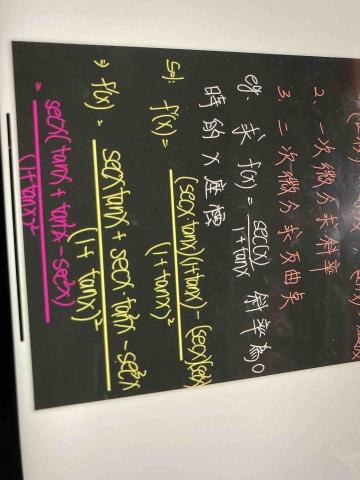 2、一次微分求斜率
3、二次微分求反曲点
eg. 求 f(x) = sec(x) / 1+tanx 斜率為0
時的 X 座標
sol: f'(x) = (secx tanx)(1+tanx) - (secx)(sec²x) / (1+tanx)²
⇒ f'(x) = secx tanx + secx·tan²x - sec³x / (1+tanx)²
= secx(tanx + tan²x - sec²x) / (1+tanx)²